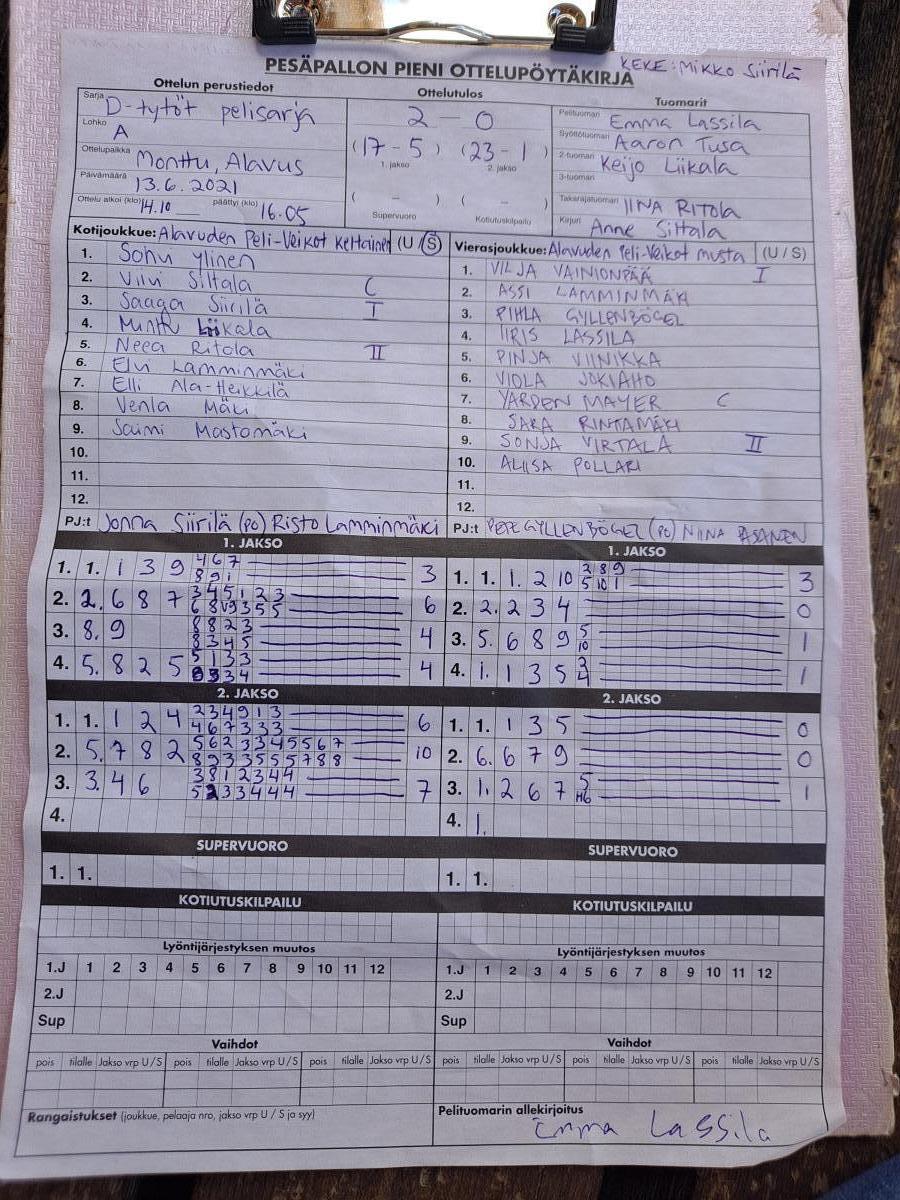 KEKE: Mikko Siirilä
PESÄPALLON PIENI OTTELUPÖYTÄKIRJA
Ottelun perustiedot
Sarja D-tytöt pelisarja
Lohko A
Ottelupaikka Monttu, Alavus
Päivämäärä 13.6.2021
Ottelu alkoi (klo) 14.10 päättyi (klo) 16.05
Ottelutulos
2 - 0
(17 - 5) (23 - 1)
1. jakso 2. jakso
( - ) ( - )
Supervuoro Kotiutuskilpailu
Tuomarit
Pelituomari Emma Lassila
Syöttötuomari Aaron Tusa
2-tuomari Keijo Liikala
3-tuomari
Takarajatuomari IINA RITOLA
Kirjuri Anne Siltala
Kotijoukkue: Alavuden Peli-Veikot keltainen (U / S)
1. Sohvi Ylinen
2. Viivi Siltala C
3. Saaga Siirilä I
4. Minttu Liikala
5. Neea Ritola II
6. Elvi Lamminmäki
7. Elli Ala-Heikkilä
8. Venla Mäki
9. Saimi Mastomäki
10.
11.
12.
PJ:t Jonna Siirilä (PO) Risto Lamminmäki
Vierasjoukkue: Alavuden Peli-Veikot musta (U / S)
1. VILJA VAINIONPÄÄ I
2. ASSI LAMMINMÄKI
3. PIHLA GYLLENBÖGEL
4. IIRIS LASSILA
5. PINJA VIINIKKA
6. VIOLA JOKIAHO
7. YARDEN MAYER C
8. SARA RINTAMÄKI
9. SONJA VIRTALA II
10. ALIISA POLLARI
11.
12.
PJ:t PEPE GYLLENBÖGEL (PO) NIINA ASANEN
1. JAKSO
1. 1. 1 3 9 4 6 7 3
8 9 1
2. 2. 6 8 7 3 4 5 1 2 3 6
3. 8. 9 8 8 2 3 4
8 3 4 5
4. 5. 8 2 5 5 1 3 3 4
2. JAKSO
1. 1. 1 2 4 2 3 4 9 1 3 6
4 6 7 3 3 3
2. 5. 7 8 2 5 6 2 3 3 4 5 5 6 7 10
8 9 3 3 5 5 5 7 8 8
3. 3. 4 6 3 8 1 2 3 4 4 7
5 2 3 3 4 4 4
4.
SUPERVUORO
1. 1.
KOTIUTUSKILPAILU
Lyöntijärjestyksen muutos
1.J 1 2 3 4 5 6 7 8 9 10 11 12
2.J
Sup
Vaihdot
pois tilalle Jakso vrp U/S pois tilalle Jakso vrp U/S pois tilalle Jakso vrp U/S
Rangaistukset (joukkue, pelaaja nro, jakso vrp U / S ja syy)
1. JAKSO
1. 1. 1. 2 10 2 8 9 3
5 10 1
2. 2. 2 3 4 0
3. 5. 6 8 9 5 1
10
4. 1. 1 3 5 2 1
4
2. JAKSO
1. 1. 1 3 5 0
2. 6. 6 7 9 0
3. 1. 2 6 7 5 1
H6
4. 1.
SUPERVUORO
1. 1.
KOTIUTUSKILPAILU
Lyöntijärjestyksen muutos
1.J 1 2 3 4 5 6 7 8 9 10 11 12
2.J
Sup
Vaihdot
pois tilalle Jakso vrp U/S pois tilalle Jakso vrp U/S pois tilalle Jakso vrp U/S
Pelituomarin allekirjoitus
Emma Lassila